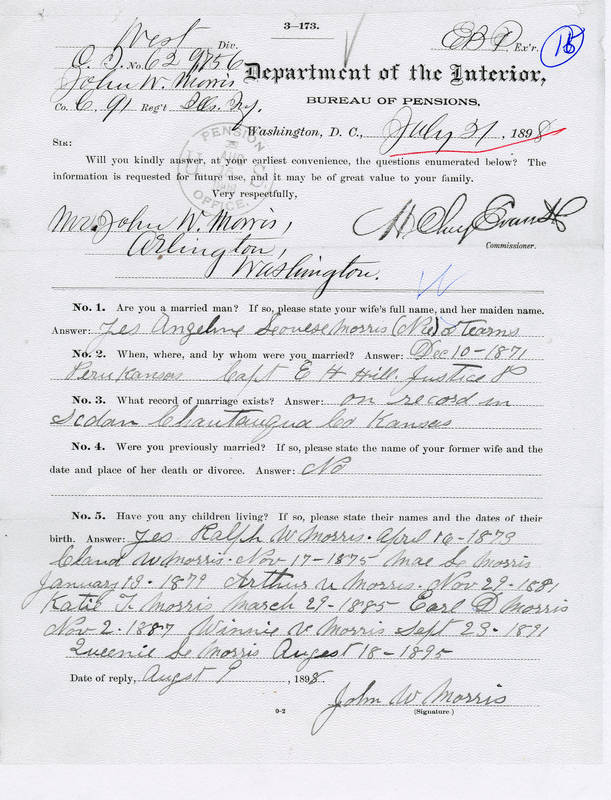 3—173.
West Div.
E B P Ex'r.
15
C. T. No. 629756
John W. Morris
Department of the Interior,
Co. C, 91 Reg't Ills. Inf.
BUREAU OF PENSIONS,
Washington, D. C., July 21, 1898
PENSION
OFFICE
SIR:
Will you kindly answer, at your earliest convenience, the questions enumerated below? The
information is requested for future use, and it may be of great value to your family.
Very respectfully,
Mr. John W. Morris,
H Clay Evans
Commissioner.
Arlington,
Washington.
No. 1. Are you a married man? If so, please state your wife's full name, and her maiden name.
Answer: Yes Angeline Morris (Nee) Stearns
No. 2. When, where, and by whom were you married? Answer: Dec 10-1871
Peru Kansas Capt E H Hill. Justice P
No. 3. What record of marriage exists? Answer: on record in
Sedan Chautauqua Co Kansas
No. 4. Were you previously married? If so, please state the name of your former wife and the
date and place of her death or divorce. Answer: No
No. 5. Have you any children living? If so, please state their names and the dates of their
birth. Answer: Yes Ralph W Morris. April 16-1873
Claud W Morris. Nov 17-1875 Mae Le Morris
January 19. 1879 Arthur U Morris. Nov 29-1881
Katie T. Morris March 29-1885 Earl D Morris
Nov 2. 1887 Winnie V Morris Sept 23-1891
Queenie Le Morris Augest 18-1895
Date of reply, Augst 9, 1898.
John W Morris
(Signature.)
0-2